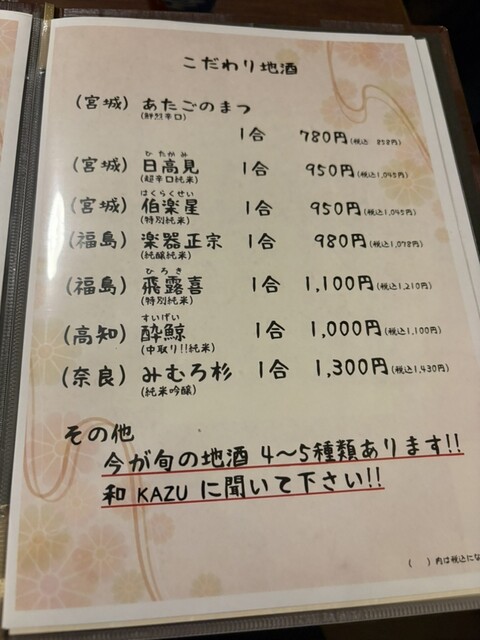 こだわり地酒
(宮城) あたごのまつ
(鮮烈辛口)
1合 780円(税込 858円)
ひたかみ
(宮城) 日高見 1合 950円(税込1,045円)
(超辛口純米)
はくらくせい
(宮城) 伯楽星 1合 950円(税込1,045円)
(特別純米)
(福島) 楽器正宗 1合 980円(税込1,078円)
(純醸純米)
ひろき
(福島) 飛露喜 1合 1,100円(税込1,210円)
(特別純米)
すいげい
(高知) 酔鯨 1合 1,000円(税込1,100円)
(中取り!!純米)
(奈良) みむろ杉 1合 1,300円(税込1,430円)
(純米吟醸)
その他
今が旬の地酒 4〜5種類あります!!
和 KAZU に聞いて下さい!!
( )内は税込にな